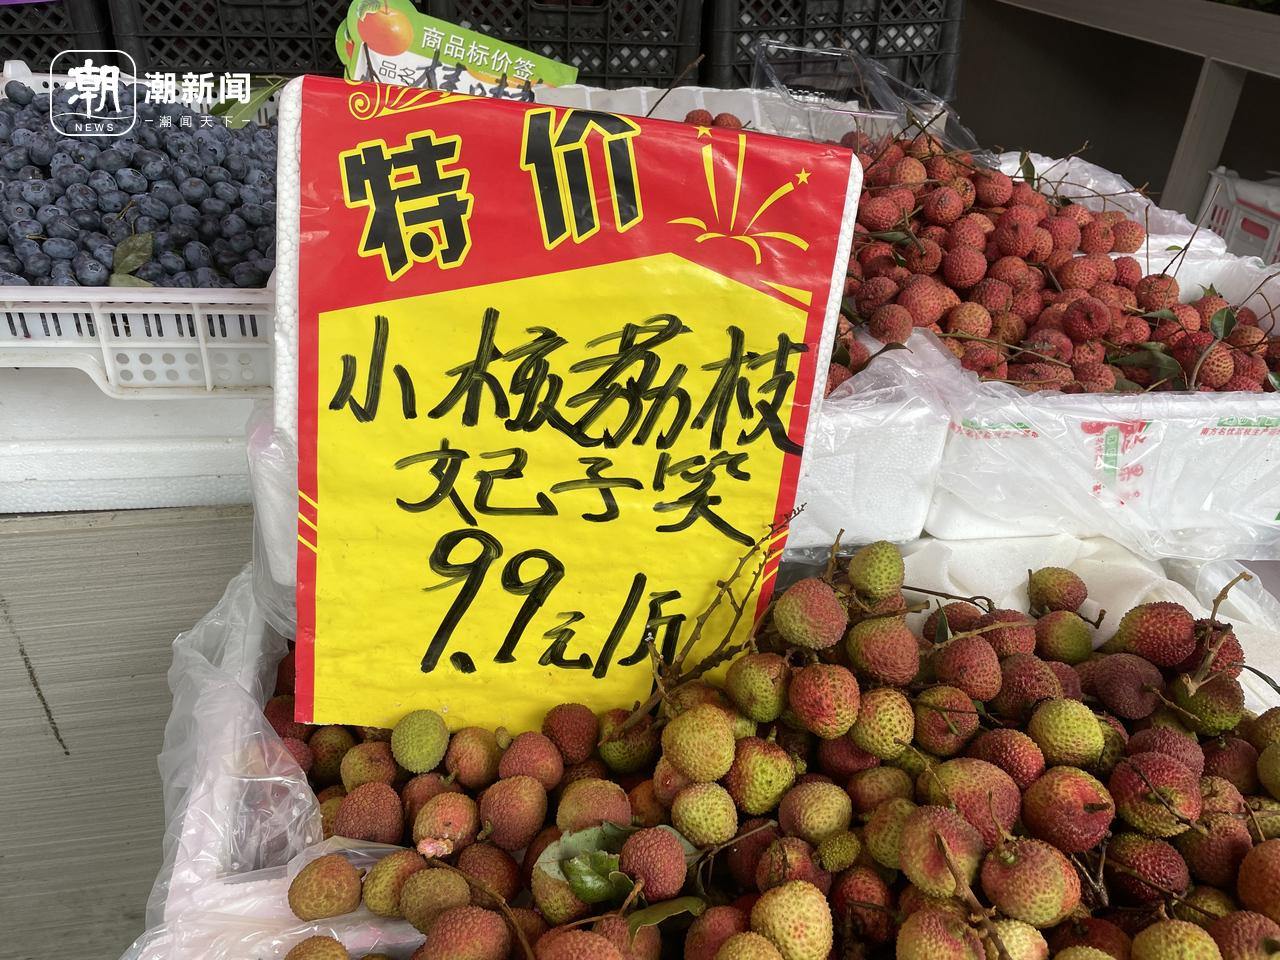 潮
NEWS
潮新闻
潮闻天下
商品标价签
品名
特价
小核荔枝
妃子笑
9.9元/斤